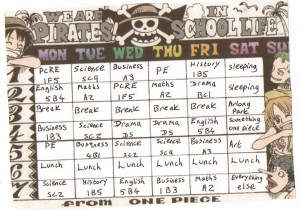 WE ARE PIRATES IN SCHOOL LIFE
MON TUE WED THU FRI SAT SUN
PCRE Science Business PE History sleeping
1F5 SC9 A3 1B5
2 English Maths PCRE Maths Drama sleeping
5B4 A2 1F5 A2 BC1
3 Break Break Break Break Break Arlong Park
4 Business Science Drama Drama English Something
1B3 SC2 D5 D5 5B4 one piece
5 PE Business Science Science Business Art
SC9 A3
6 Lunch Lunch Lunch Lunch Lunch Lunch
7 Science History English Business Maths Everything
SC2 1B5 5B4 1B3 A2 else
from ONE PIECE